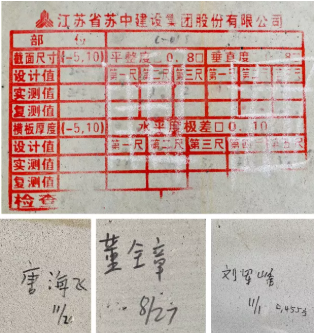 江苏省苏中建设集团股份有限公司
部 位
截面尺寸(-5,10) 平整度 0,8□ 垂直度 8
设计值 第一尺 第二尺 第三尺 第一尺 第二尺 第三尺
实测值
复测值
楼板厚度(-5,10) 水平度极差□0,10
设计值 第一尺 第二尺 第三尺 第四尺 第五尺
实测值
复测值
检查
唐海飞
11/2
董全章
8/27
刘
11/1